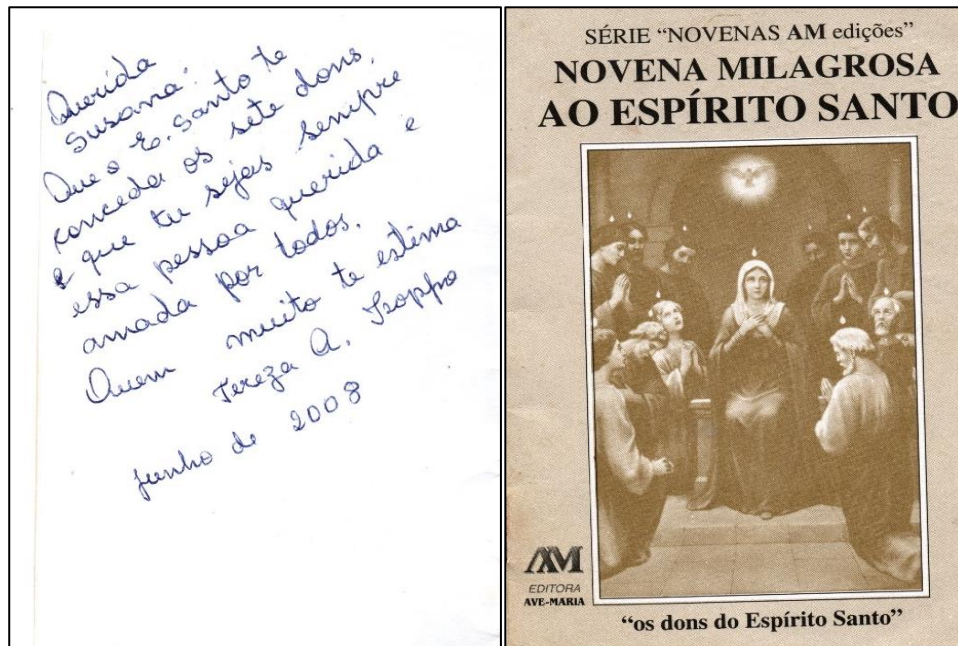 Querida
Susana:
Que o E. Santo te
conceda os sete dons,
e que tu sejas sempre
essa pessoa querida e
amada por todos.
Quem muito te estima
Tereza A.
junho de 2008
SÉRIE “NOVENAS AM edições”
NOVENA MILAGROSA
AO ESPÍRITO SANTO
AM
EDITORA
AVE-MARIA
“os dons do Espírito Santo”